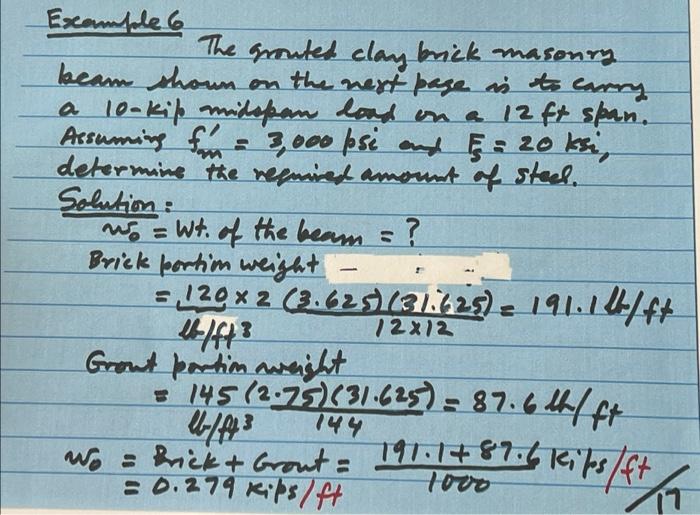 Example 6
The grouted clay brick masonry
beam shown on the next page is to carry
a 10-kip midspan load on a 12 ft span.
Assuming f'm = 3,000 psi and Fs = 20 ksi,
determine the required amount of steel.
Solution:
wo = Wt. of the beam = ?
Brick portion weight
= 120 × 2 (3.625)(31.625) = 191.1 lb/ft
lb/ft3 12×12
Grout portion weight
= 145 (2.75)(31.625) = 87.6 lb/ft
lb/ft3 144
Wo = Brick + Grout = 191.1 + 87.6 kips/ft
1000
= 0.279 kips/ft
/17